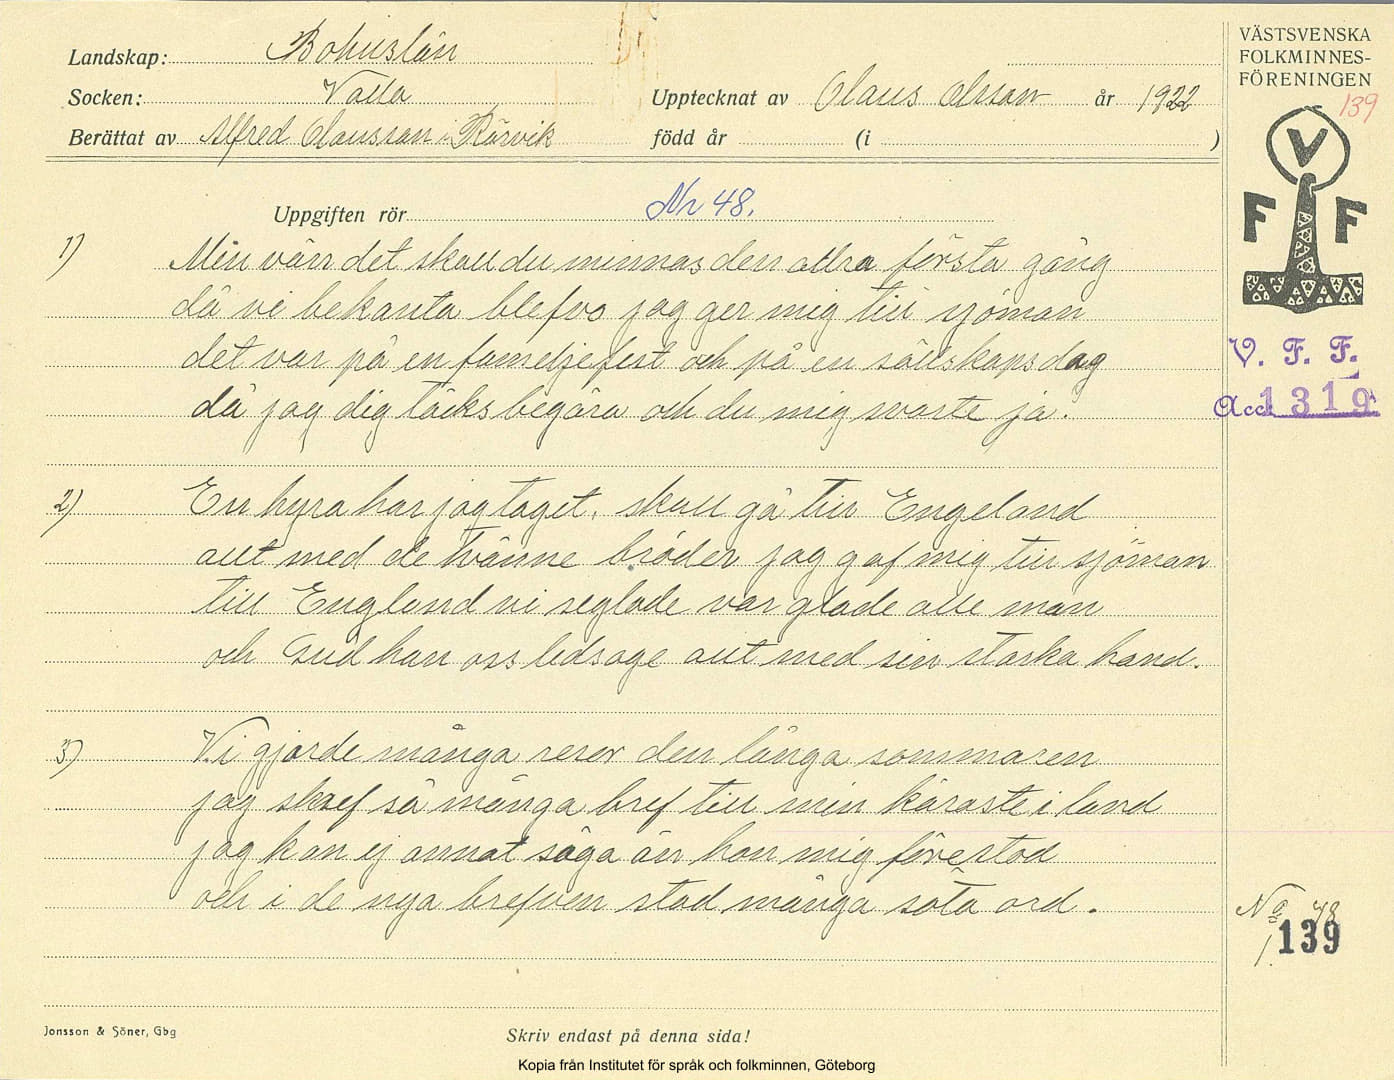 Landskap: Bohuslän
Socken: Valla
Upptecknat av Olaus Olsson år 1922
Berättat av Alfred Claussan i Rörvik
född år (i )
Uppgiften rör Nr 48.
1) Min vän det skall du minnas den allra första gång
då vi bekanta blefvo jag ger mig till sjöman
det var på en fameljefest och på en sällskapsdag
då jag dig täcks begära och du mig svarte ja.
2) En hyra har jag taget, skall gå till Engeland
allt med de tvänne bröder jag gaf mig till sjöman
till England vi seglade var glade alle man
och Gud han oss ledsage allt med sin starka hand.
3) Vi gjorde många resor den långa sommaren
jag skref så många bref till min käraste i land
jag kan ej annat säga än hon mig förestod
och i de nya brefven stod många söta ord.
Jonsson & Söner, Gbg
Skriv endast på denna sida!
Kopia från Institutet för språk och folkminnen, Göteborg
VÄSTSVENSKA
FOLKMINNES-
FÖRENINGEN
139
V
F F
V. F. F.
Acc. 1319
No 48
1.
139